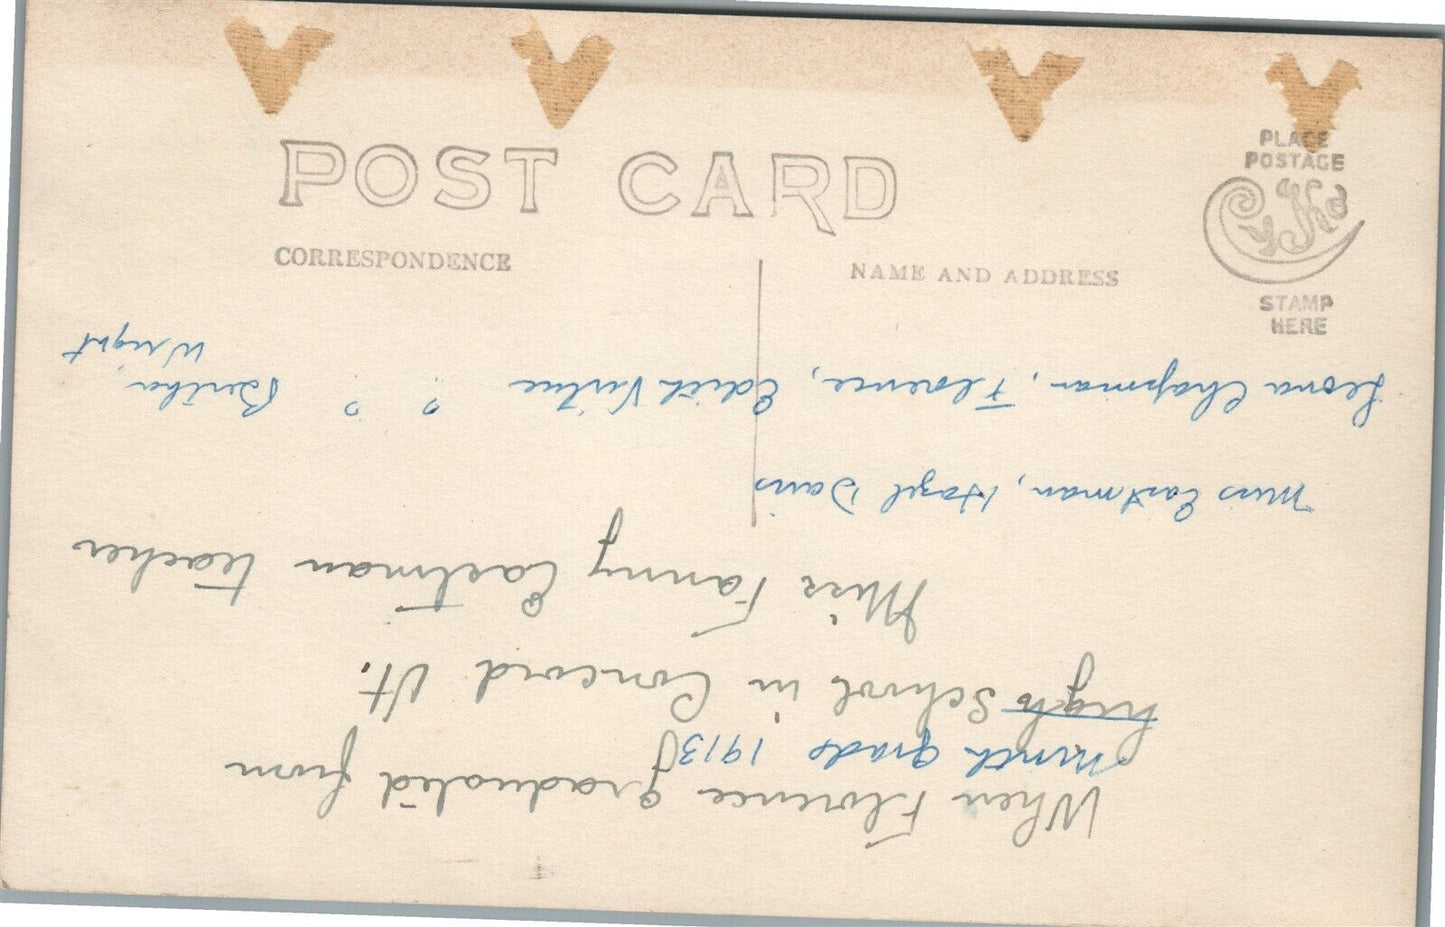 POST CARD
CORRESPONDENCE
NAME AND ADDRESS
PLACE
POSTAGE
STAMP
HERE
When Florence graduated from
ninth grade 1913
high School in Concord Vt.
Miss Fanny Eastman teacher
Miss Eastman, Hazel Davis
Leona Chapman, Florence, Edith Virtue ? ? Bertha
Wright